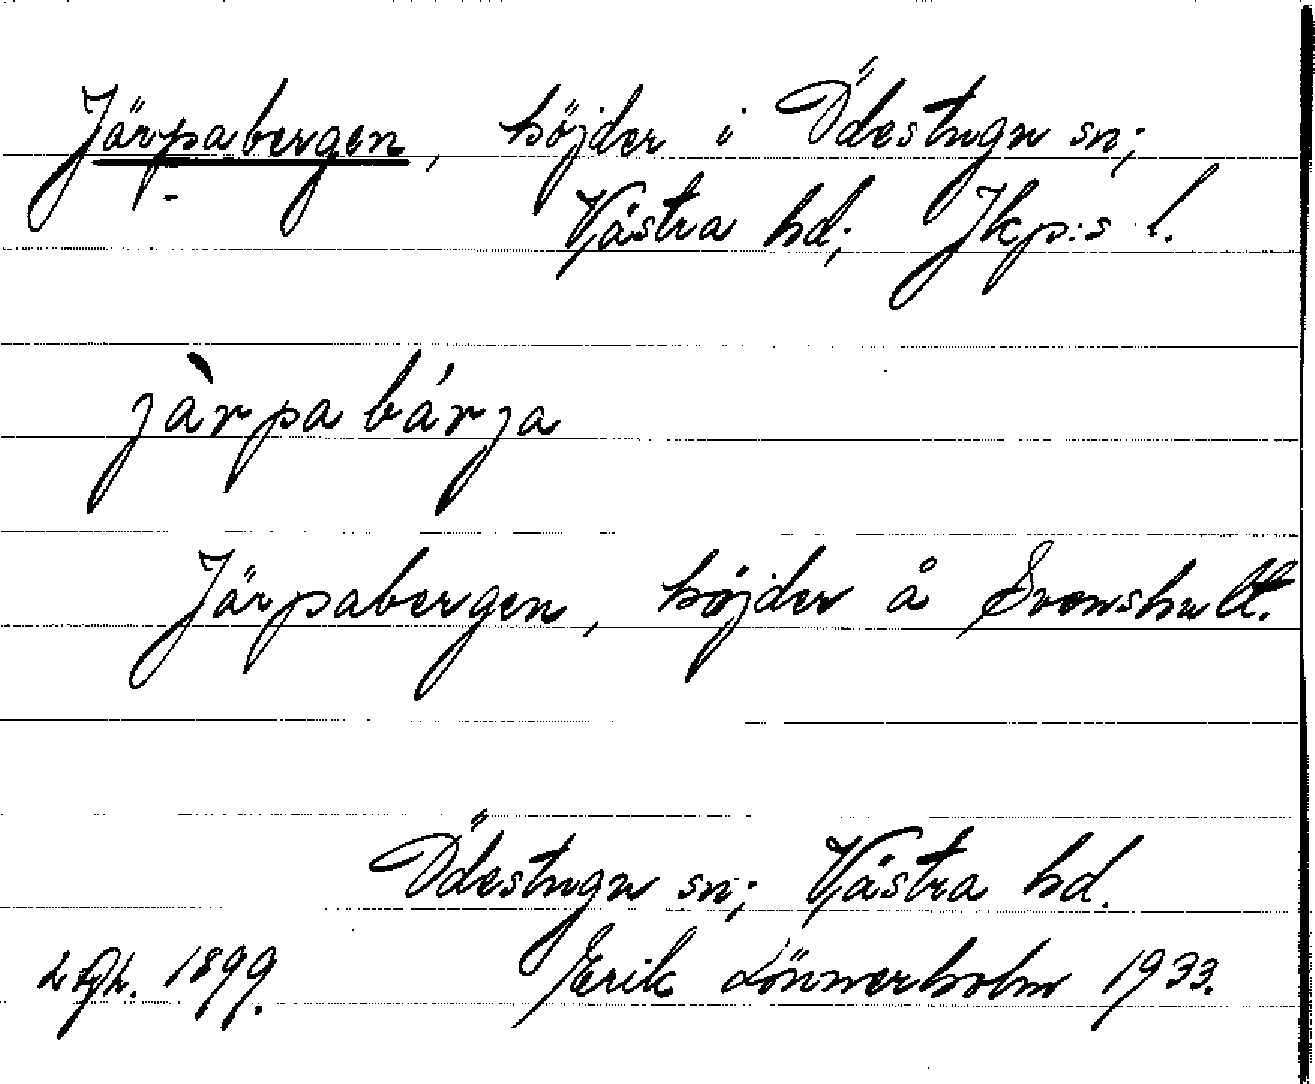 Järpabergen, höjder i Ödestugu sn;
Västra hd; Jkp:s l.
jàrpabárja
Järpabergen, höjder å Svenshult.
Ödestugu sn; Västra hd.
1899. Erik Lönnerholm 1933.